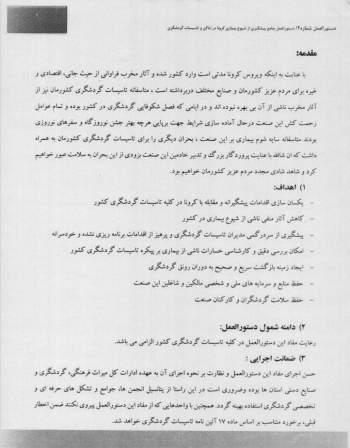 دستورالعمل شماره ۱۴: دستورالعمل جامع پیشگیری از شیوع بیماری کرونا در اماکن و تاسیسات گردشگری
مقدمه:
با عنایت به اینکه ویروس کرونا مدتی است وارد کشور شده و آثار مخرب فراوانی از حیث جانی، اقتصادی و
غیره برای مردم عزیز کشورمان و صنایع مختلف دربرداشته است ، متاسفانه تاسیسات گردشگری کشورمان نیز از
آثار مخرب ناشی از آن بی بهره نبوده اند و در ایامی که فصل شکوفایی گردشگری در کشور بوده و تمام عوامل
زحمت کش این صنعت درحال آماده سازی شرایط جهت برپایی هرچه بهتر جشن نوروزگاه و سفرهای نوروزی
بودند متاسفانه سایه شوم بیماری بر این صنعت ، بحران دیگری را برای تاسیسات گردشگری کشورمان به همراه
داشت که ان شاالله با عنایت پروردگار بزرگ و تدبیر خادمین این صنعت بزودی از این بحران به سلامت عبور خواهیم
کرد و شاهد شادی مجدد مردم عزیز کشورمان خواهیم بود.
۱) اهداف:
- یکسان سازی اقدامات پیشگیرانه و مقابله با کرونا در کلیه تاسیسات گردشگری کشور
- کاهش آثار منفی ناشی از شیوع بیماری در کشور
- پیشگیری از سردرگمی مدیران تاسیسات گردشگری و پرهیز از اقدامات برنامه ریزی نشده و خودسرانه
- امکان بررسی دقیق و کارشناسی خسارات ناشی از بیماری بر پیکره تاسیسات گردشگری کشور
- ایجاد زمینه بازگشت سریع و صحیح به دوران رونق گردشگری
- حفظ منابع و سرمایه های ملی و شخصی مالکین و شاغلین این صنعت
- حفظ سلامت گردشگران و کارکنان صنعت
۲) دامنه شمول دستورالعمل:
رعایت مفاد این دستورالعمل در کلیه تاسیسات گردشگری کشور الزامی می باشد.
۳) ضمانت اجرایی :
حسن اجرای مفاد این دستورالعمل و نظارت بر نحوه اجرای آن به عهده ادارات کل میراث فرهنگی، گردشگری و
صنایع دستی استان ها بوده وضروری است در این راستا از پتانسیل انجمن ها، جوامع و تشکل های حرفه ای و
تخصصی گردشگری استفاده بهینه گردد. همچنین با واحدهایی که از مفاد این دستورالعمل پیروی نکنند ضمن اخطار
قبلی، برخورد متناسب بر اساس ماده ۱۷ آئین نامه تاسیسات گردشگری خواهد شد.